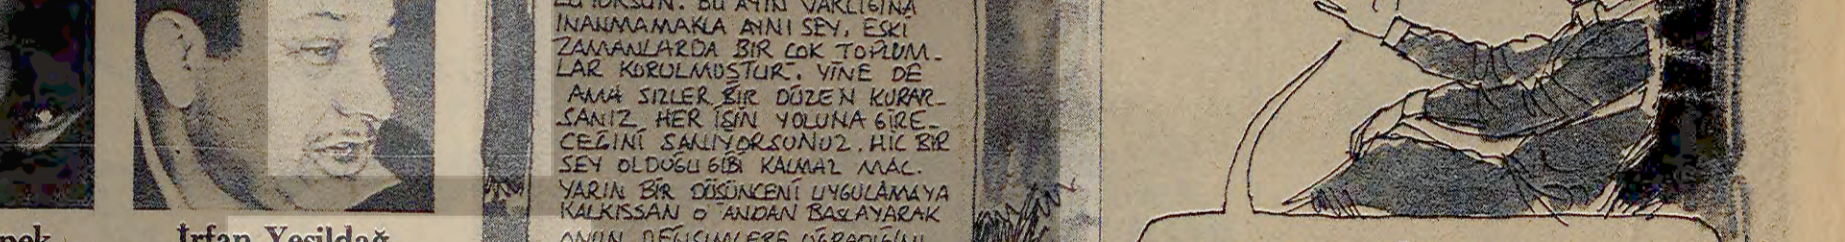 BU AYIN VARLIĞINA
INANMAMAKLA AYNI SEY. ESKİ
ZAMANLARDA BIR COK TOPLUM-
LAR KURULMUSTUR. YİNE DE
AMA SIZLER BIR DÜZEN KURAR-
SANIZ HER İŞİN YOLUNA GİRE-
CEĞİNİ SANIYORSUNUZ. HIC BIR
SEY OLDUĞU GİBİ KALMAZ MAC.
YARIN BIR DÜŞÜNCENİ UYGULAMAYA
KALKISSAN O ANDAN BASLAYARAK
ONUN DEĞİSİMLERE UĞRADIĞINI
İrfan Yeşildağ